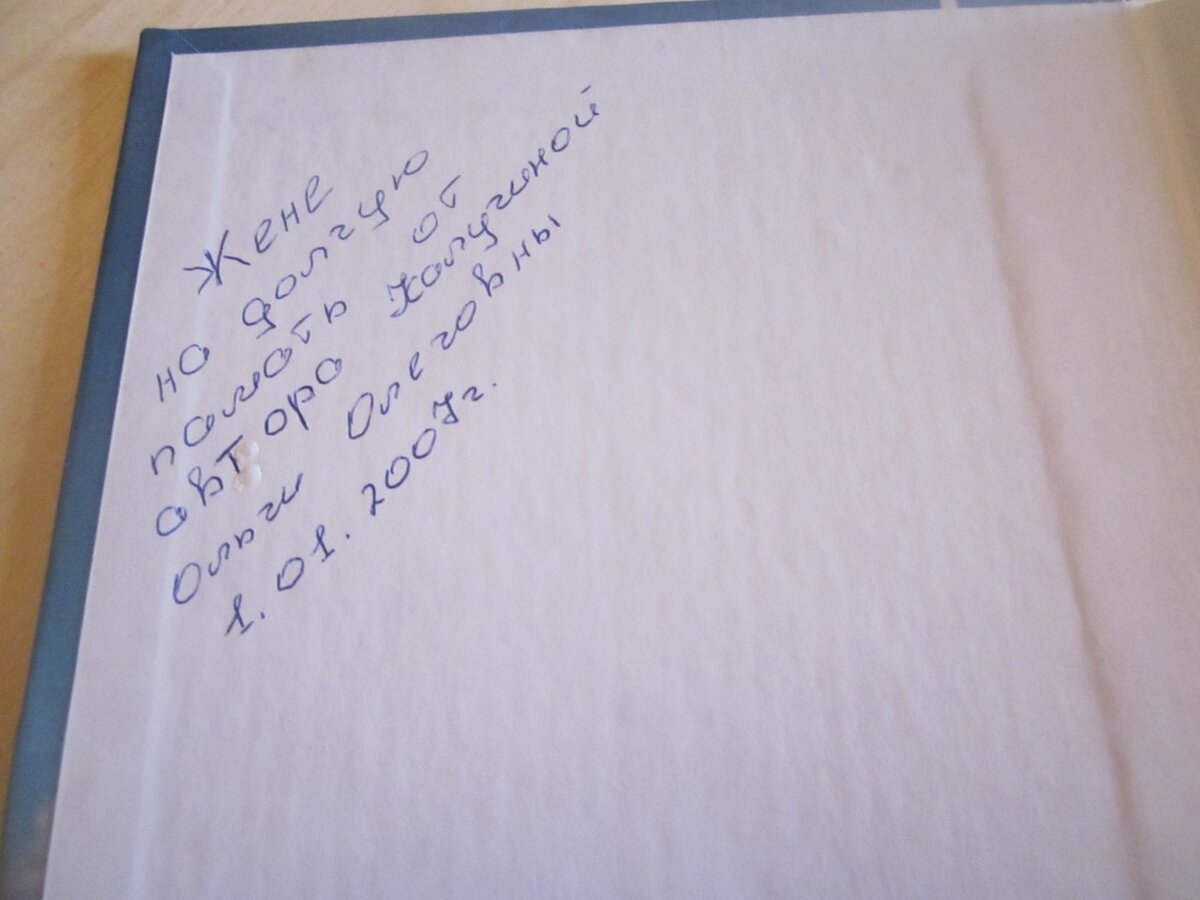 Жене
на долгую
память от
автора Калугиной
Ольги Олеговны
1.01.2007г.